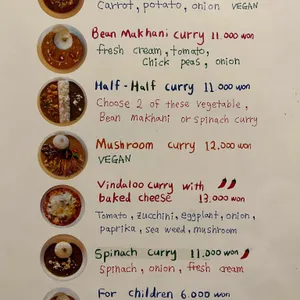 Carrot, potato, onion VEGAN
Bean Makhani curry 11.000 won
fresh cream, tomato,
chick peas, onion
Half-Half curry 11.000 won
Choose 2 of these vegetable,
Bean makhani or spinach curry
Mushroom curry 12.000 won
VEGAN
Vindaloo curry with
baked cheese 13.000 won
Tomato, zucchini, eggplant, onion,
paprika, sea weed, mushroom
Spinach curry 11.000 won
spinach, onion, fresh cream
For children 6.000 won